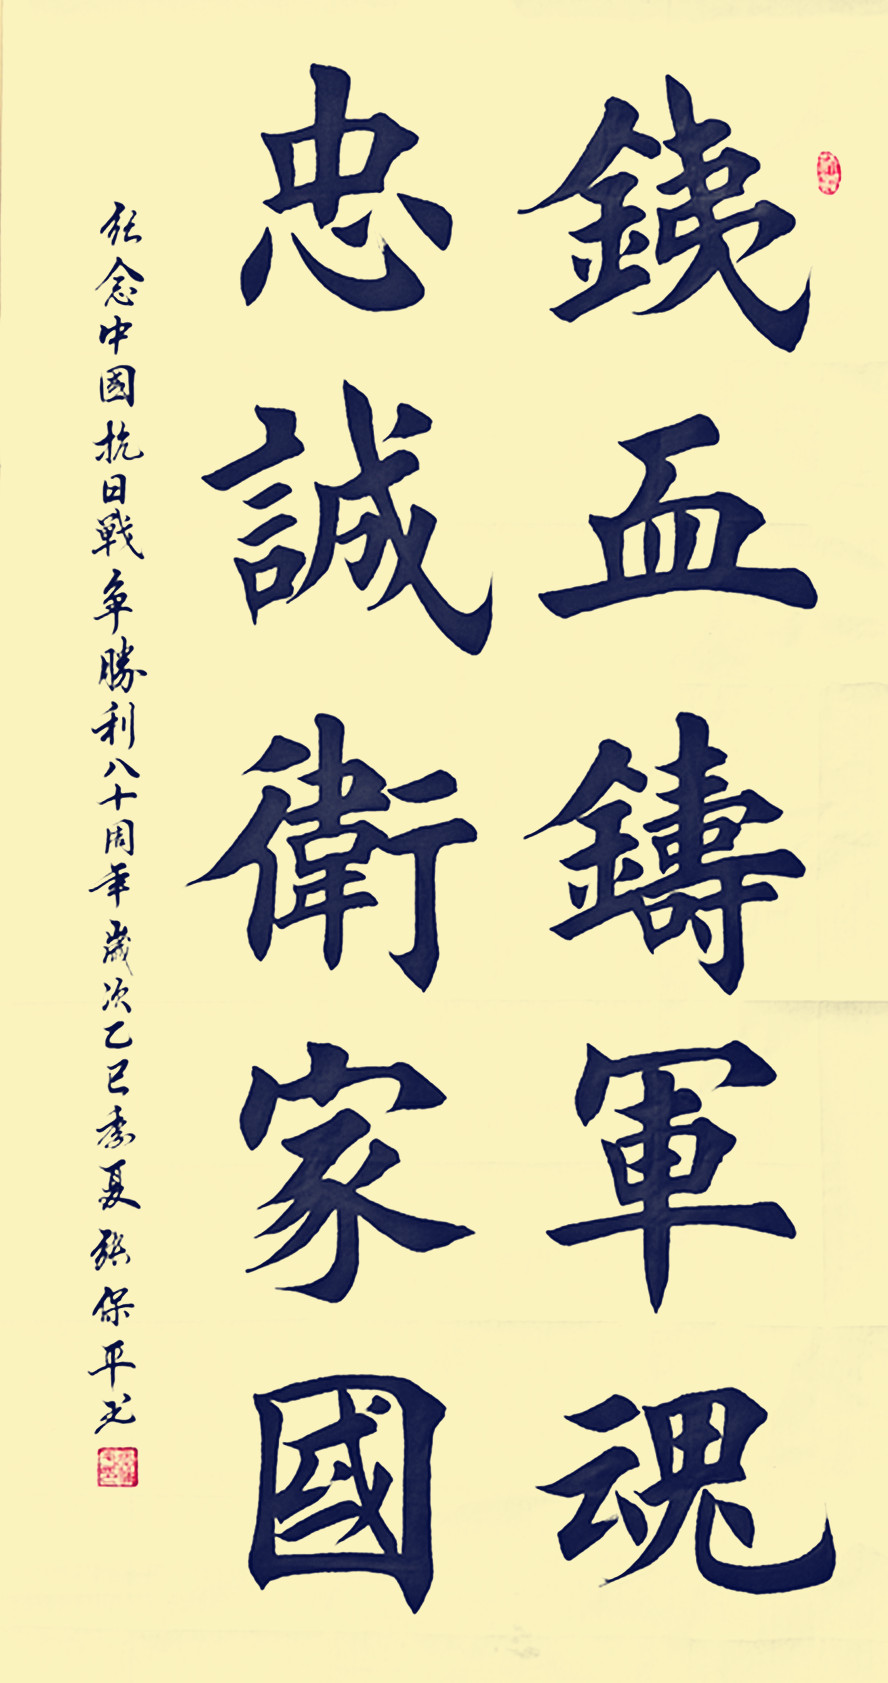 銕血鑄軍魂
忠誠衛家國
紀念中國抗日戰爭勝利八十周年歲次乙巳季夏張保平書